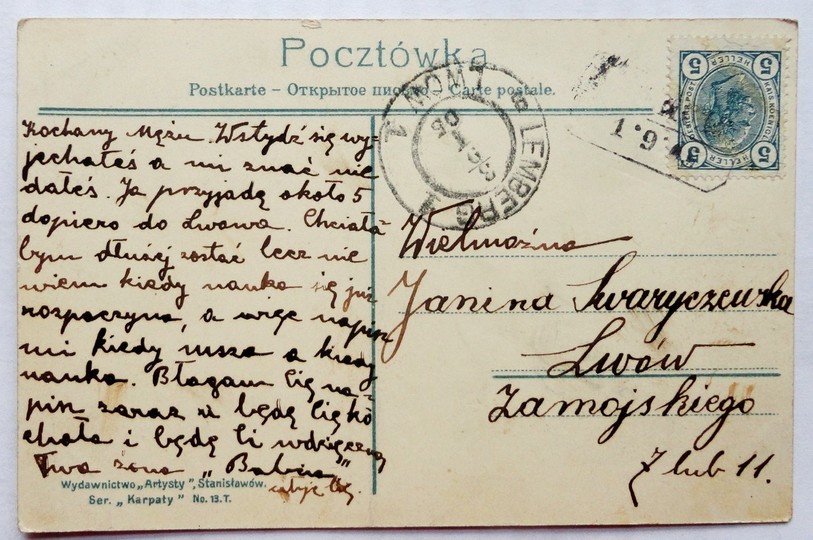 Pocztówka
Postkarte – Открытое письмо – Carte postale.
Kochany Mężu. Wstydź się wy=
jechałeś a mi znać nie
dałeś. Ja przyjadę około 5
dopiero do Lwowa. Chciała=
bym dłużej zostać lecz nie
wiem kiedy nauka się już
rozpoczyna, a więc napisz
mi kiedy msza a kiedy
nauka. Błagam Cię na=
pisz zaraz a będę Cię ko
chała i będę Ci wdzięczną
Twa żona „Babcia"
całuje Cię.
Wydawnictwo „Artysty", Stanisławów.
Ser. „Karpaty" No. 13.T.
LEMBERG
LWÓW 1
5 5
HELLER
5 5
HELLER
Wielmożna
Janina Swaryczewska
Lwów
Zamojskiego
7 lub 11.